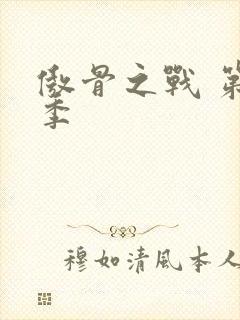 傲骨之戰 第
季
穆如清風本人